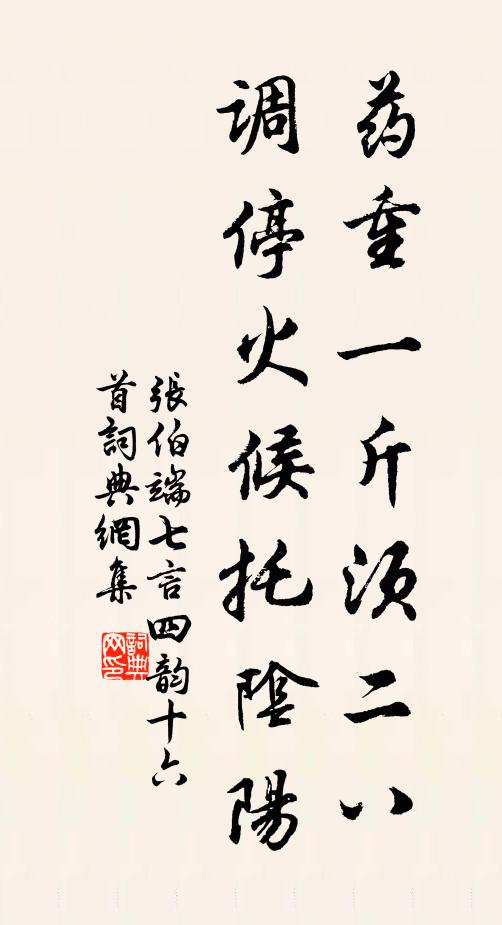 药重一斤须二八
调停火候托陰陽
張伯端七言四韵十六
首詞典網集
詞典
网印